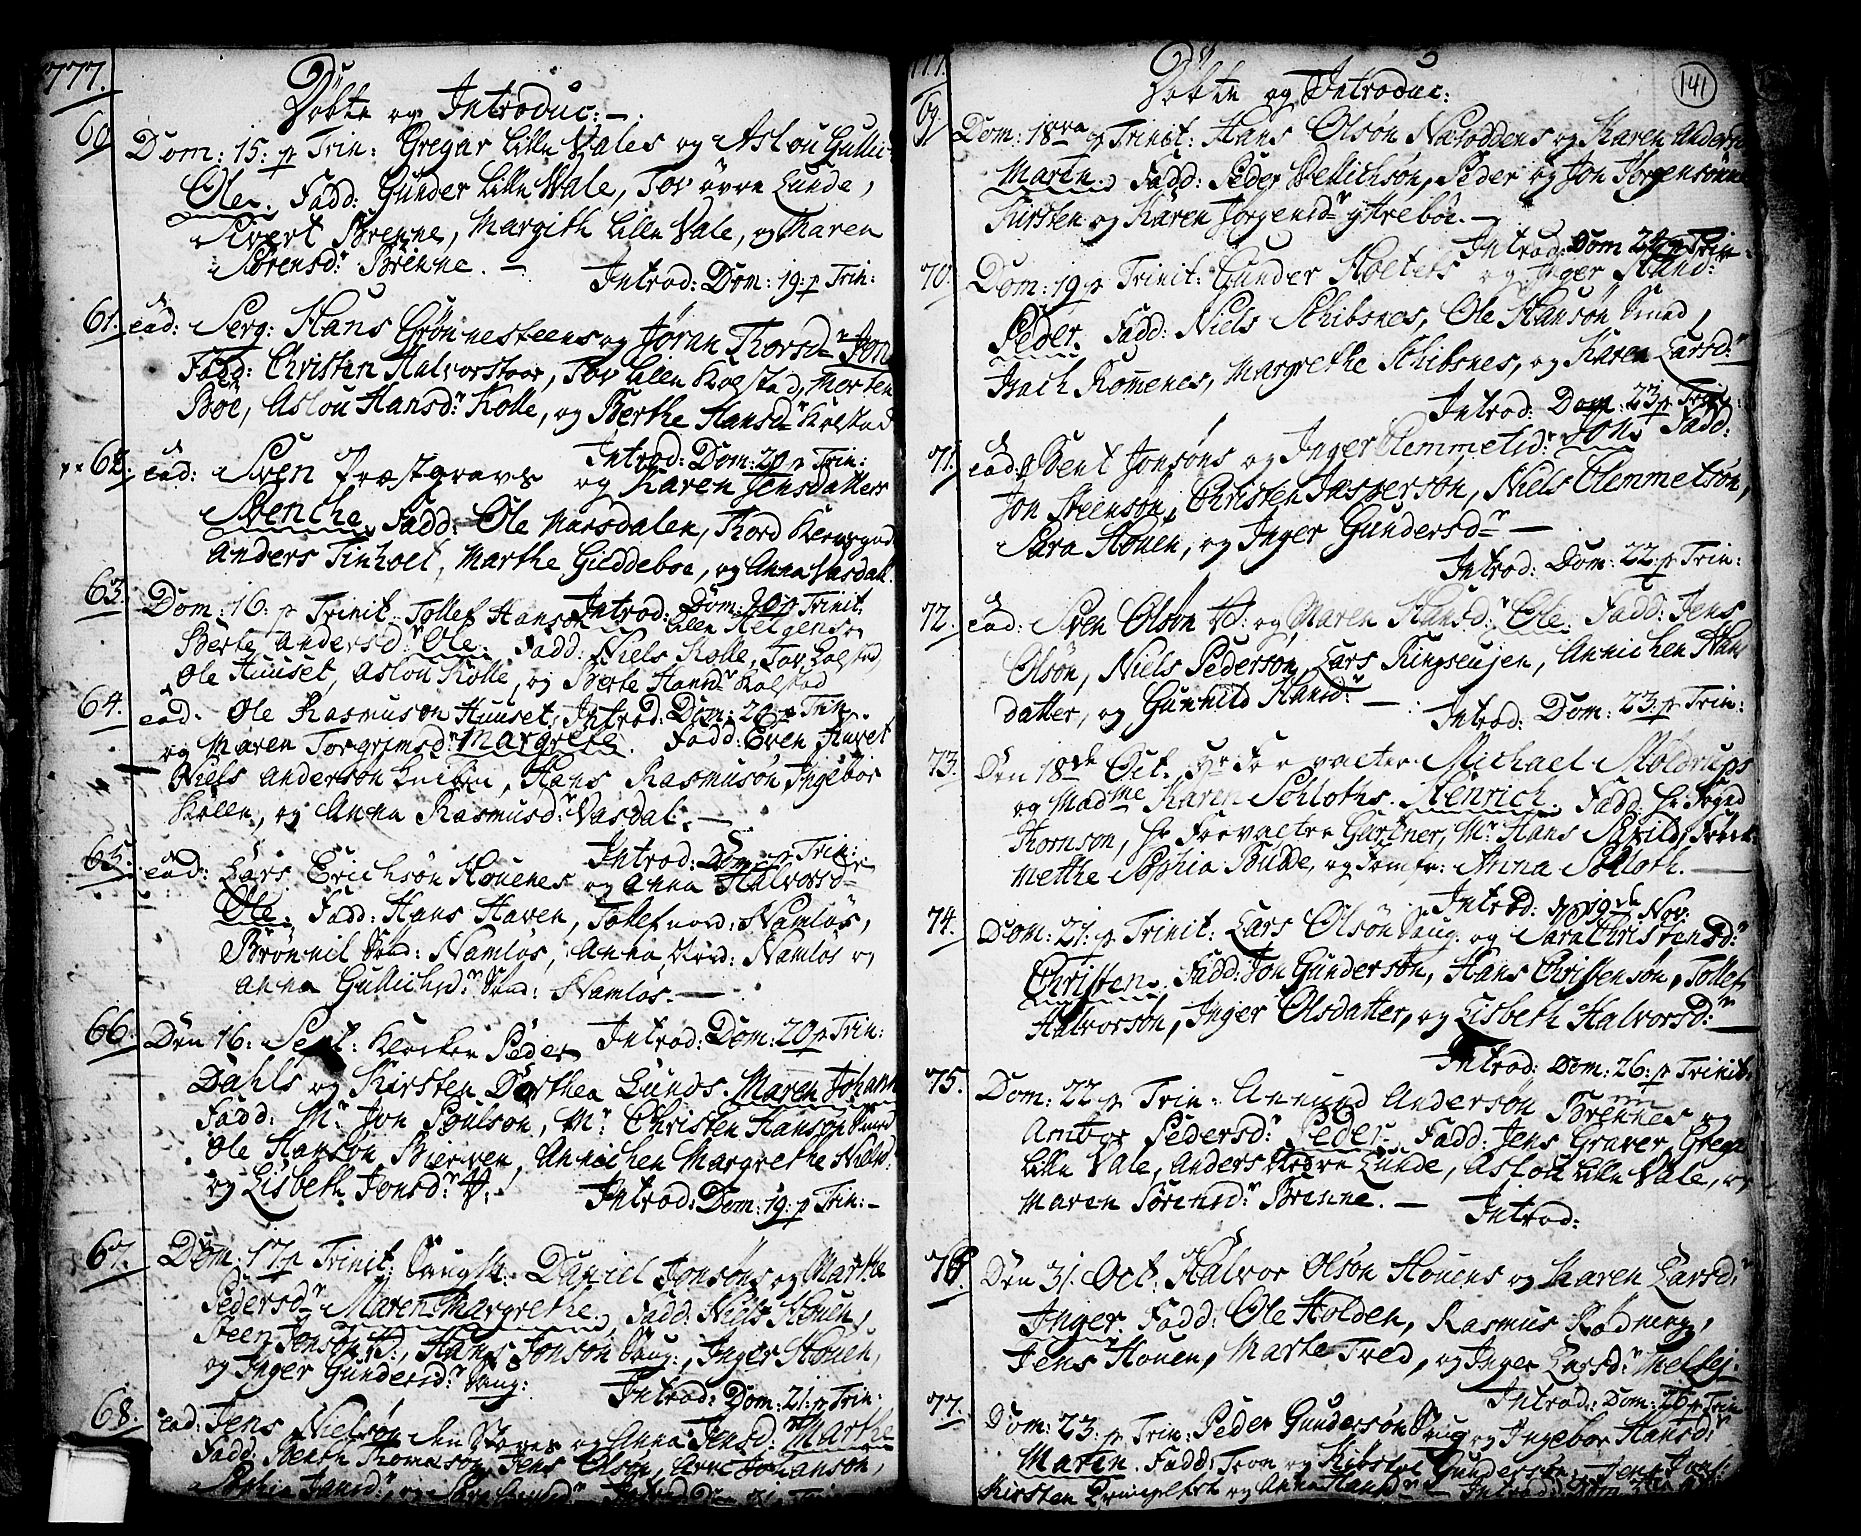 1777.
Döbte og Introduc:
60 Dom: 15: p Trin: Gregar Lille Vales og Aslou Gulli
Ole. Fadd: Gunder Lille Vale, Tov övre Lunde,
Sivert Brenne, Margith Lille Vale, og Maren
Sörensdr Brenne. — Introd: Dom: 19: p Trin:
61. ead: Serg: Hans Grönnesteens og Jöran Thorsdr Jon
Fadd: Christen Halvorstoer, Tov Lille Kolstad, Morten
Böe, Aslou Hansdr Kolle, og Berthe Hansdr Kolstad
Introd: Dom: 20 p Trin:
62. ead: Sven Præstgravs og Karen Jensdatters
Benthe. Fadd: Ole Marsdalen, Thord
Anders Tinholt, Marthe Gieddeboe, og Anna Vasdal.
Introd: Dom: 20 p Trinit.
63. Dom: 16: p Trinit. Tollef Hanson Lille Helgens og
Berte Andersdr Ole. Fadd: Niels Kolle, Tov Kolstad,
Ole Huuset, Aslou Kolle, og Berte Hansdr Kolstad
64. ead. Ole Rasmuson Huuset, Introd: Dom: 20 p Trin.
og Maren Torgrimsdr Margrete. Fadd: Even Huset
Niels Anderson, Hans Rasmusön Ingebor
Kolle, og Anna Rasmusdr Vasdal. —
Introd: Dom p Trin:
65. ead: Lars Erichsön Houenes og Anna Halvorsdr
Ole. Fadd: Hans Haven, Tollef nord: Namlös,
Brönnil Sund: Namlös, Anna Nord: Namlös og
Anna Gullichsdr Sund: Namlös. —
66. Den 16: Sept: Klocker Peder Introd: Dom: 20 p Trin:
Dahls og Kirsten Dorthea Lunds. Maren Johann
Fadd: Mr Jon Poulson, Mr Christen Hanson
Ole Hansön Bierven, Annichen Margrethe Nielsd:
og Lisbeth Jonsdr V: Introd: Dom: 19: p Trin: –
67. Dom: 17 p Trinit: Daniel Jonsöns og Marthe
Pedersdr Maren Margrethe. Fadd: Niels Houen,
Steen Jonson V:, Hans Jonson Saug:, Inger Houen,
og Inger Gundersdr Saug: Introd: Dom: 21: p Trin:
68. ead: Jens Nielsön og Anna Jensd: Marthe
Fadd: Benth Thomeson, Jens Olson, Johanson,
Introd: Dom 21 Trin
141
177
Döbte og Introduc:
69 Dom: 18va p Trinit: Hans Olsön Næsoddens og Karen Anders
Maren. Fadd: Peder Dellichsön, Peder og Jon Jörgensönner
Kirsten og Karen Jörgensdr yttreböe. —
Introd: Dom 22 p Trin.
70. Dom: 19 p Trinit: Gunder Stoltets og Inger Sund:
Peder. Fadd: Niels Schibsnes, Ole Hansön Sund,
Isach Romenes, Margrethe Schibsnes, og Karen Larsdr
Introd: Dom: 23 p Trin:
71. ead: Bent Jonsöns og Inger Clemmetsdr Jon. Fadd:
Jon Steensön, Christen Jaspersön, Niels Clemmetsön,
Sara Houen, og Inger Gundersdr —
Introd: Dom: 22: p Trin:
72. ead: Sven Olsön V: og Maren Hansdr Ole. Fadd: Jens
Olsön, Niels Pedersön, Lars Ringseujen, Annichen Hans
datter, og Gunhild Hansdr — Introd: Dom: 23: p Trin:
73. Den 18de Oct. Hr Forvalter Michael Moldrups
og Madme Karen Schloths. Henrich. Fadd: Hr Foged
Thornson, Hr Forvalter Gartner, Mr Hans
Methe Sophia Budde, og Jomfr: Anna Schloth. —
Introd: d: 19de Nov:
74. Dom: 21: p Trinit: Lars Olsön Saug. og Sara Christensdr
Christen. Fadd: Jon Gundersön, Hans Christensön, Tollef
Halvorsön, Inger Olsdatter, og Lisbeth Halvorsdr —
Introd: Dom: 26: p Trinit:
75. Dom: 22 p Trin: Amund Andersön Brennes og
Ambor Pedersdr Peder. Fadd: Jens Graver, Grega
Lille Vale, Anders Lunde, Aslou Lille Vale, og
Maren Sörensdr Brenne. — Introd:
76. Den 31. Oct. Halvor Olsön Houens og Karen Larsdr
Inger. Fadd: Ole Holden, Rasmus Rödmyr,
Jens Houen, Marte Tved, og Inger Larsdr
Introd: Dom: 26 p Trin
77. Dom: 23. p Trin: Peder Gundersön Saug og Ingebor Hansdr
Maren. Fadd: Tron og Kibstol Gunderson, Jens
Kirsten og Anna Hansdr Introd: Dom